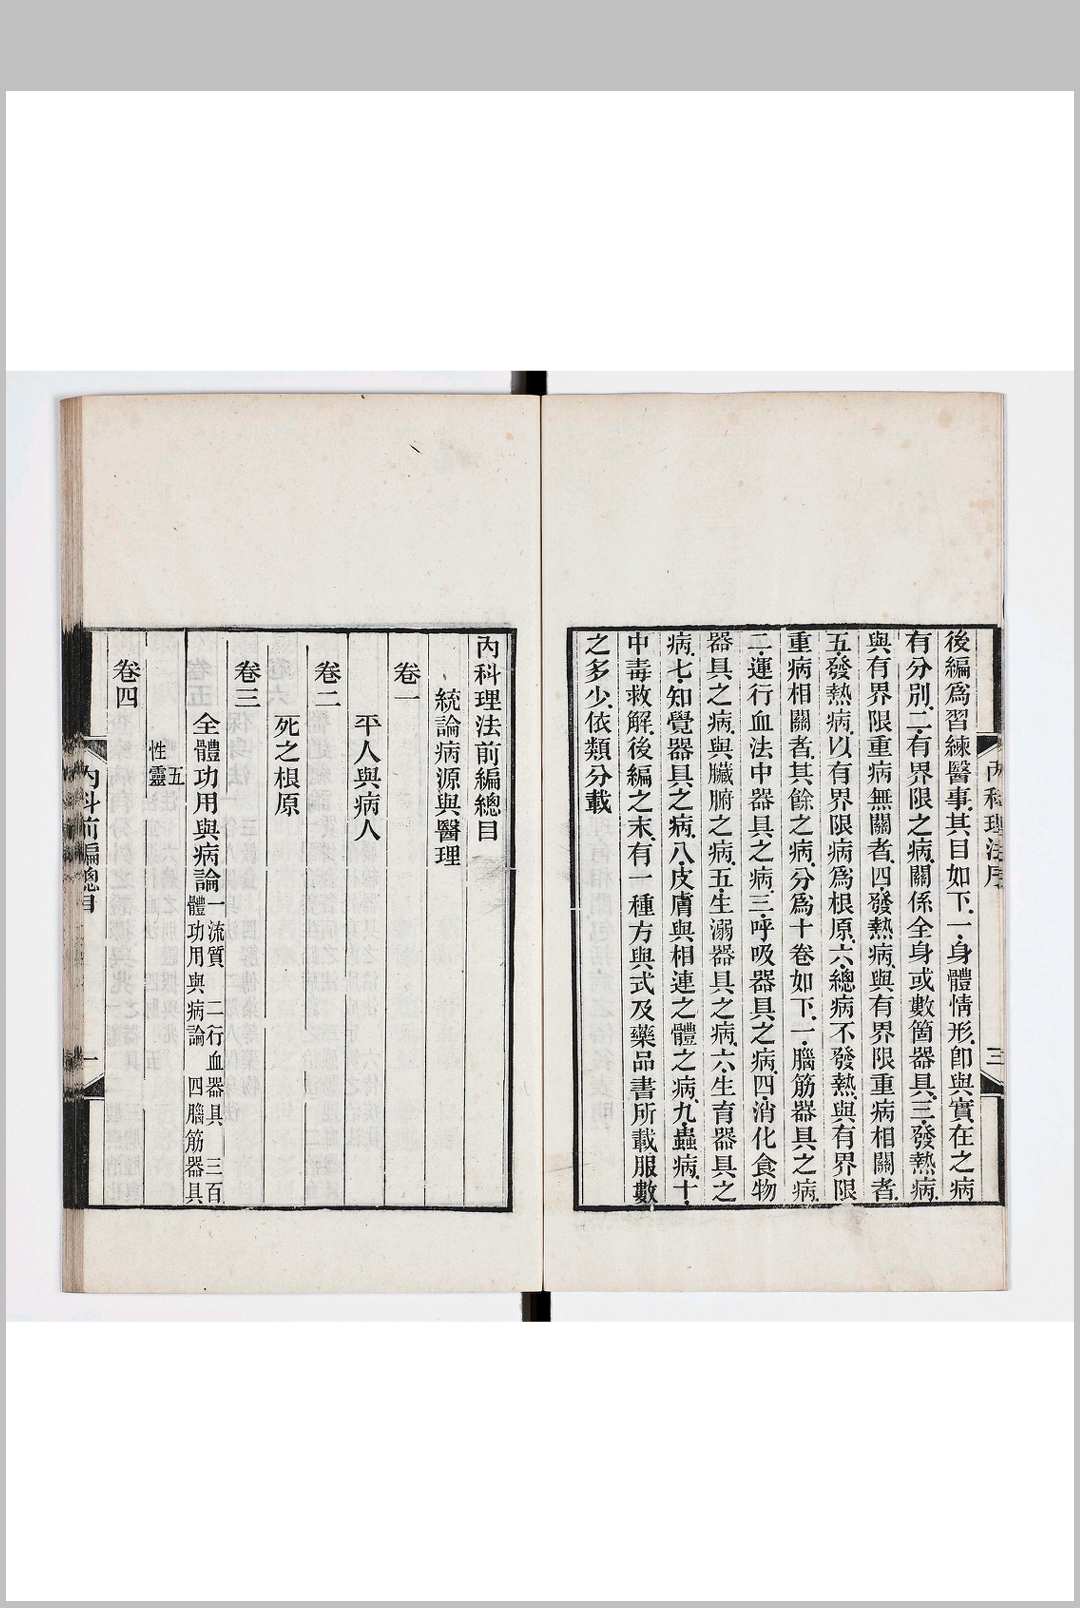 後編爲習練醫事其目如下一身體情形卽與實在之病
有分別二有界限之病關係全身或數箇器具三發熱病
與有界限重病無關者四發熱病與有界限重病相關者
五發熱病以有界限病爲根原六總病不發熱與有界限
重病相關者其餘之病分爲十卷如下一腦筋器具之病
二運行血法中器具之病三呼吸器具之病四消化食物
器具之病與臟腑之病五生溺器具之病六生育器具之
病七知覺器具之病八皮膚與相連之體之病九蟲病十
中毒救解後編之末有一種方與式及藥品書所載服數
之多少依類分載
內科理法序
三
內科理法前編總目
統論病源與醫理
卷一
平人與病人
卷二
死之根原
卷三
全體功用與病論 一流質 二行血器具 三百
體功用與病論 四腦筋器具
五
性靈
卷四
內科前編總目
一